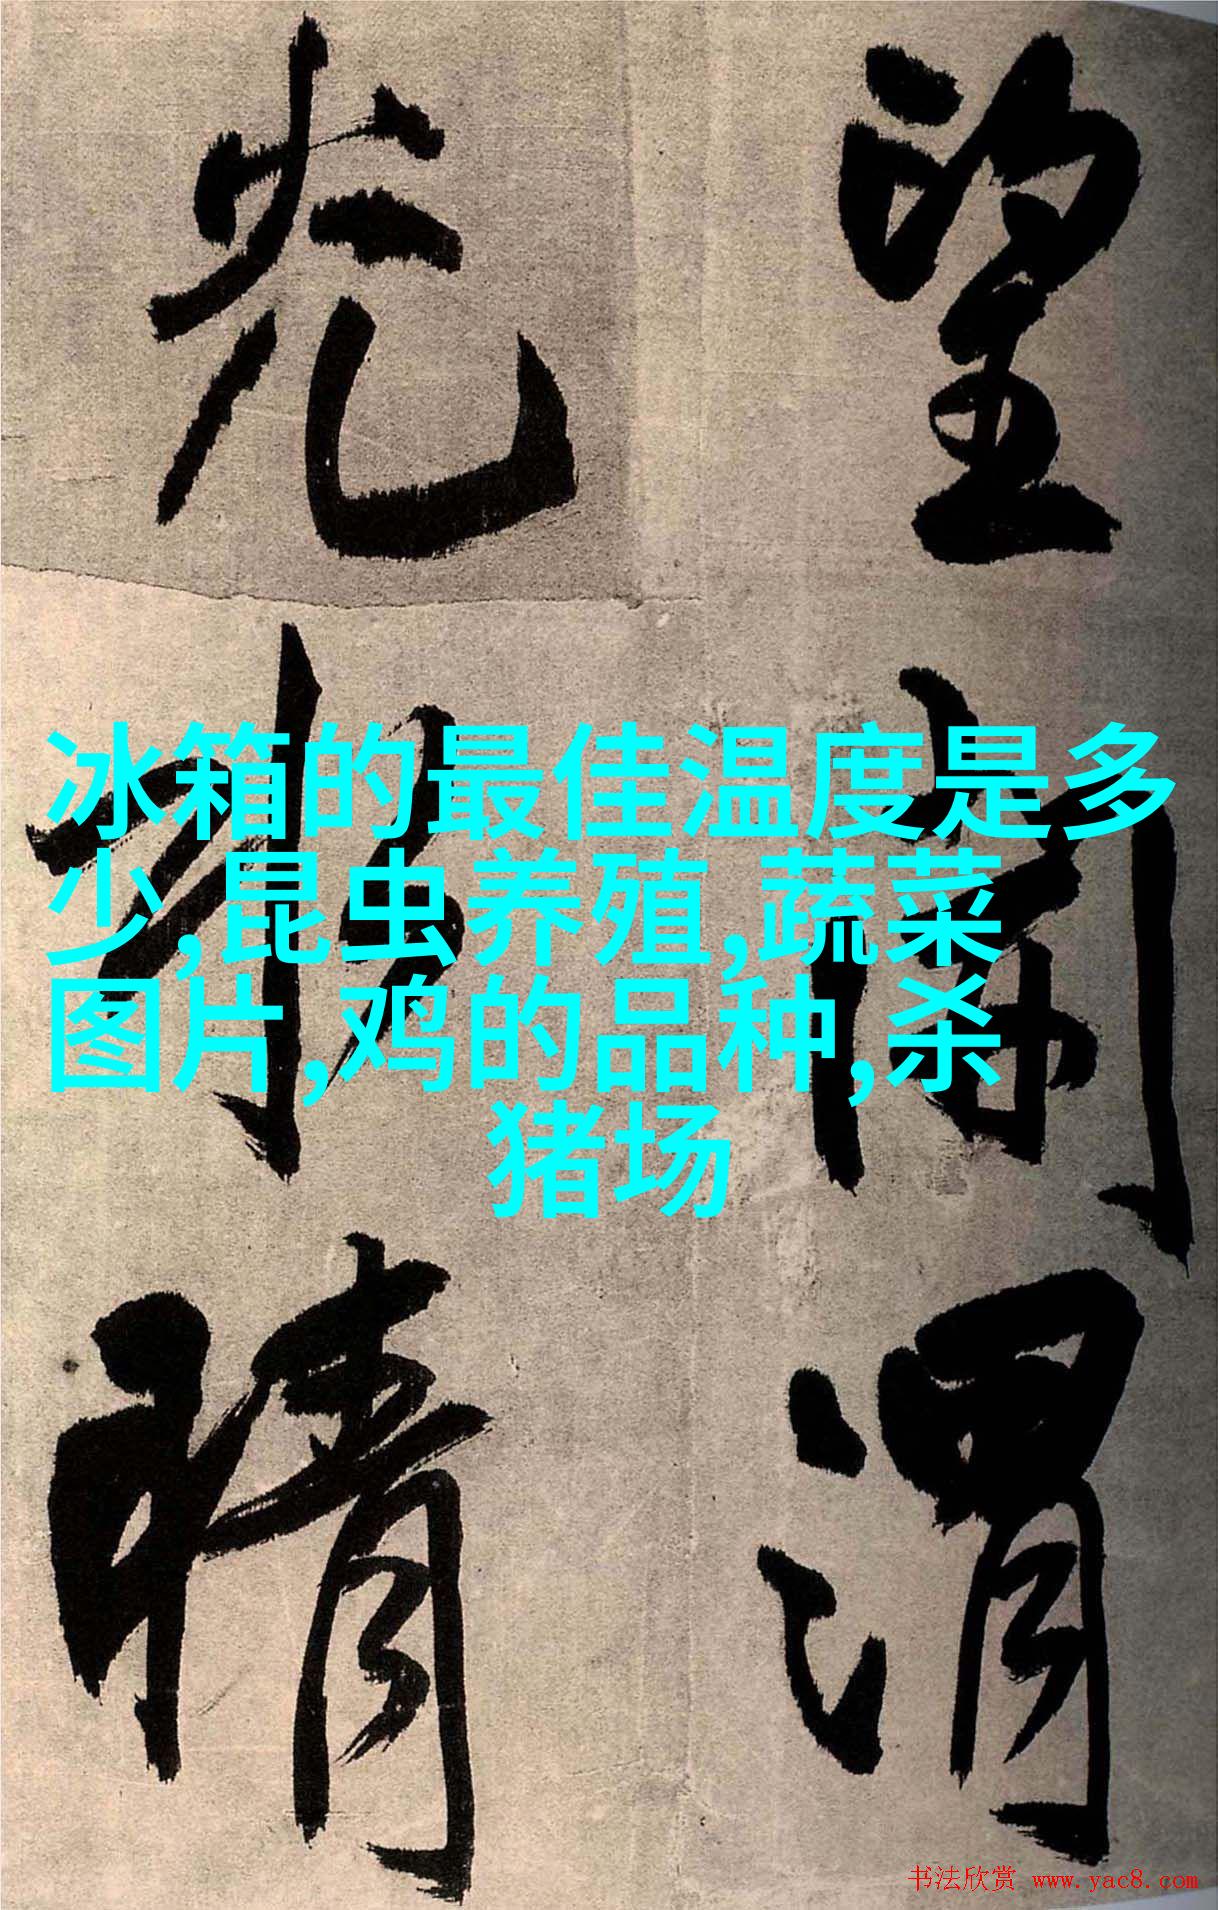 望
阑
渭
光
相
晴
冰箱的最佳温度是多
少,昆虫养殖,蔬菜
图片,鸡的品种,杀
猪场
书法欣赏 www.yac8.com